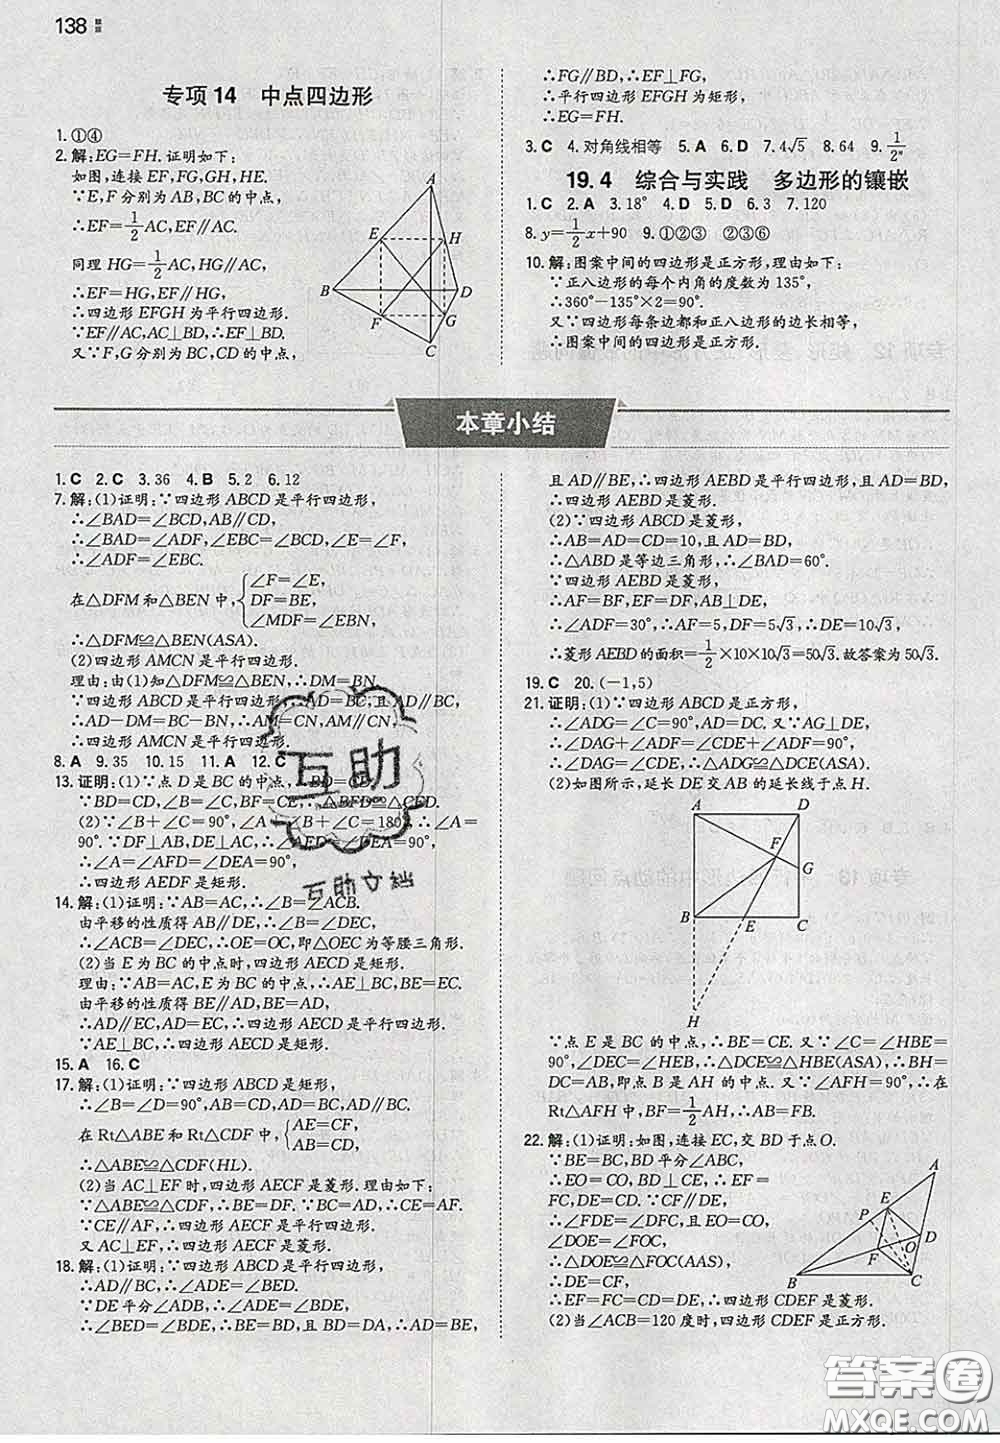 138
专项14 中点四边形
1.①④
2.解:EG=FH.证明如下:
如图,连接EF,FG,GH,HE.
∵E,F分别为AB,BC的中点,
∴EF=1/2AC,EF∥AC.
同理HG=1/2AC,HG∥AC,
∴EF=HG,EF∥HG.
∴四边形EFGH为平行四边形.
∵EF∥AC,AC⊥BD,∴EF⊥BD.
又∵F,G分别为BC,CD的中点,
A
E
H
B
D
F
G
C
∴FG∥BD,∴EF⊥FG,
∴平行四边形EFGH为矩形,
∴EG=FH.
3.C 4.对角线相等 5.A 6.D 7.4√5 8.64 9.1/2ⁿ
19.4 综合与实践 多边形的镶嵌
1.C 2.A 3.18° 4.D 5.D 6.3 7.120
8.y=1/2x+90 9.①②③ ②③⑥
10.解:图案中间的四边形是正方形,理由如下:
∵正八边形的每个内角的度数为135°,
∴360°-135°×2=90°.
又∵四边形每条边都和正八边形的边长相等,
∴图案中间的四边形是正方形.
本章小结
1.C 2.C 3.36 4.B 5.2 6.12
7.解:(1)证明:∵四边形ABCD是平行四边形,
∴∠BAD=∠BCD,AB∥CD,
∴∠BAD=∠ADF,∠EBC=∠BCD,∠E=∠F,
∴∠ADF=∠EBC.
在△DFM和△BEN中,{∠F=∠E, DF=BE, ∠MDF=∠EBN,
∴△DFM≌△BEN(ASA).
(2)四边形AMCN是平行四边形.
理由:由(1)知△DFM≌△BEN,∴DM=BN.
∵四边形ABCD是平行四边形,∴AD=BC,且AD∥BC,
∴AD-DM=BC-BN,∴AM=CN,AM∥CN,
∴四边形AMCN是平行四边形.
8.A 9.35 10.15 11.A 12.C
13.证明:(1)∵点D是BC的中点,∴BD=CD.
∵BD=CD,∠B=∠C,BF=CE,∴△BFD≌△CED.
(2)∵∠B+∠C=90°,∠A+∠B+∠C=180°,∴∠A=
90°.∵DF⊥AB,DE⊥AC,∴∠AFD=∠DEA=90°,
∴∠A=∠AFD=∠DEA=90°,
∴四边形AEDF是矩形.
14.解:(1)证明:∵AB=AC,∴∠B=∠ACB.
由平移的性质得AB∥DE,∴∠B=∠DEC,
∴∠ACB=∠DEC,∴OE=OC,即△OEC为等腰三角形.
(2)当E为BC的中点时,四边形AECD是矩形.
理由:∵AB=AC,E为BC的中点,∴AE⊥BC,BE=EC.
由平移的性质得BE∥AD,BE=AD,
∴AD∥EC,AD=EC,∴四边形AECD是平行四边形.
∵AE⊥BC,∴四边形AECD是矩形.
15.A 16.C
17.解:(1)证明:∵四边形ABCD是矩形,
∴∠B=∠D=90°,AB=CD,AD=BC,AD∥BC.
在Rt△ABE和Rt△CDF中,{AE=CF, AB=CD,
∴△ABE≌△CDF(HL).
(2)当AC⊥EF时,四边形AECF是菱形.理由如下:
∵△ABE≌△CDF,∴BE=DF.∵BC=AD,∴CE=AF.
∵CE∥AF,∴四边形AECF是平行四边形.
又AC⊥EF,∴四边形AECF是菱形.
18.解:(1)证明:∵四边形ABCD是平行四边形,
∴AD∥BC,∴∠ADE=∠BED.
∵DE平分∠ADB,∴∠ADE=∠BDE,
∴∠BED=∠BDE,∴BE=BD.且BD=DA,∴AD=BE,
且AD∥BE,∴四边形AEBD是平行四边形,且AD=BD,
∴四边形AEBD是菱形.
(2)∵四边形ABCD是菱形,
∴AB=AD=CD=10,且AD=BD,
∴△ABD是等边三角形,∴∠BAD=60°.
∵四边形AEBD是菱形,
∴AF=BF,EF=DF,AB⊥DE,
∴∠ADF=30°,∴AF=5,DF=5√3,∴DE=10√3,
∴菱形AEBD的面积=1/2×10×10√3=50√3.故答案为50√3.
19.C 20.(-1,5)
21.证明:(1)∵四边形ABCD是正方形,
∴∠ADG=∠C=90°,AD=DC.又∵AG⊥DE,
∴∠DAG+∠ADF=∠CDE+∠ADF=90°,
∴∠DAG=∠CDE,∴△ADG≌△DCE(ASA).
(2)如图所示,延长DE交AB的延长线于点H.
A
D
F
G
B
E
C
H
∵点E是BC的中点,∴BE=CE.又∵∠C=∠HBE
=90°,∠DEC=∠HEB,∴△DCE≌△HBE(ASA),∴BH=
DC=AB,即点B是AH的中点.又∵∠AFH=90°,∴在
Rt△AFH中,BF=1/2AH,∴AB=FB.
22.解:(1)证明:如图,连接EC,交BD于点O.
∵BE=BC,BD平分∠ABC,
∴EO=CO,BD⊥CE,∴EF=
FC,DE=CD.∵EF∥CD,
∴∠FDE=∠DFC,且EO=CO,
∠DOE=∠FOC,
∴△DOE≌△FOC(AAS),
∴DE=CF,
∴EF=FC=CD=DE,∴四边形CDEF是菱形.
(2)当∠ACB=120度时,四边形CDEF是正方形.
A
E
P
D
O
F
B
C
互助
互助文档
答案圈
MXQE.COM